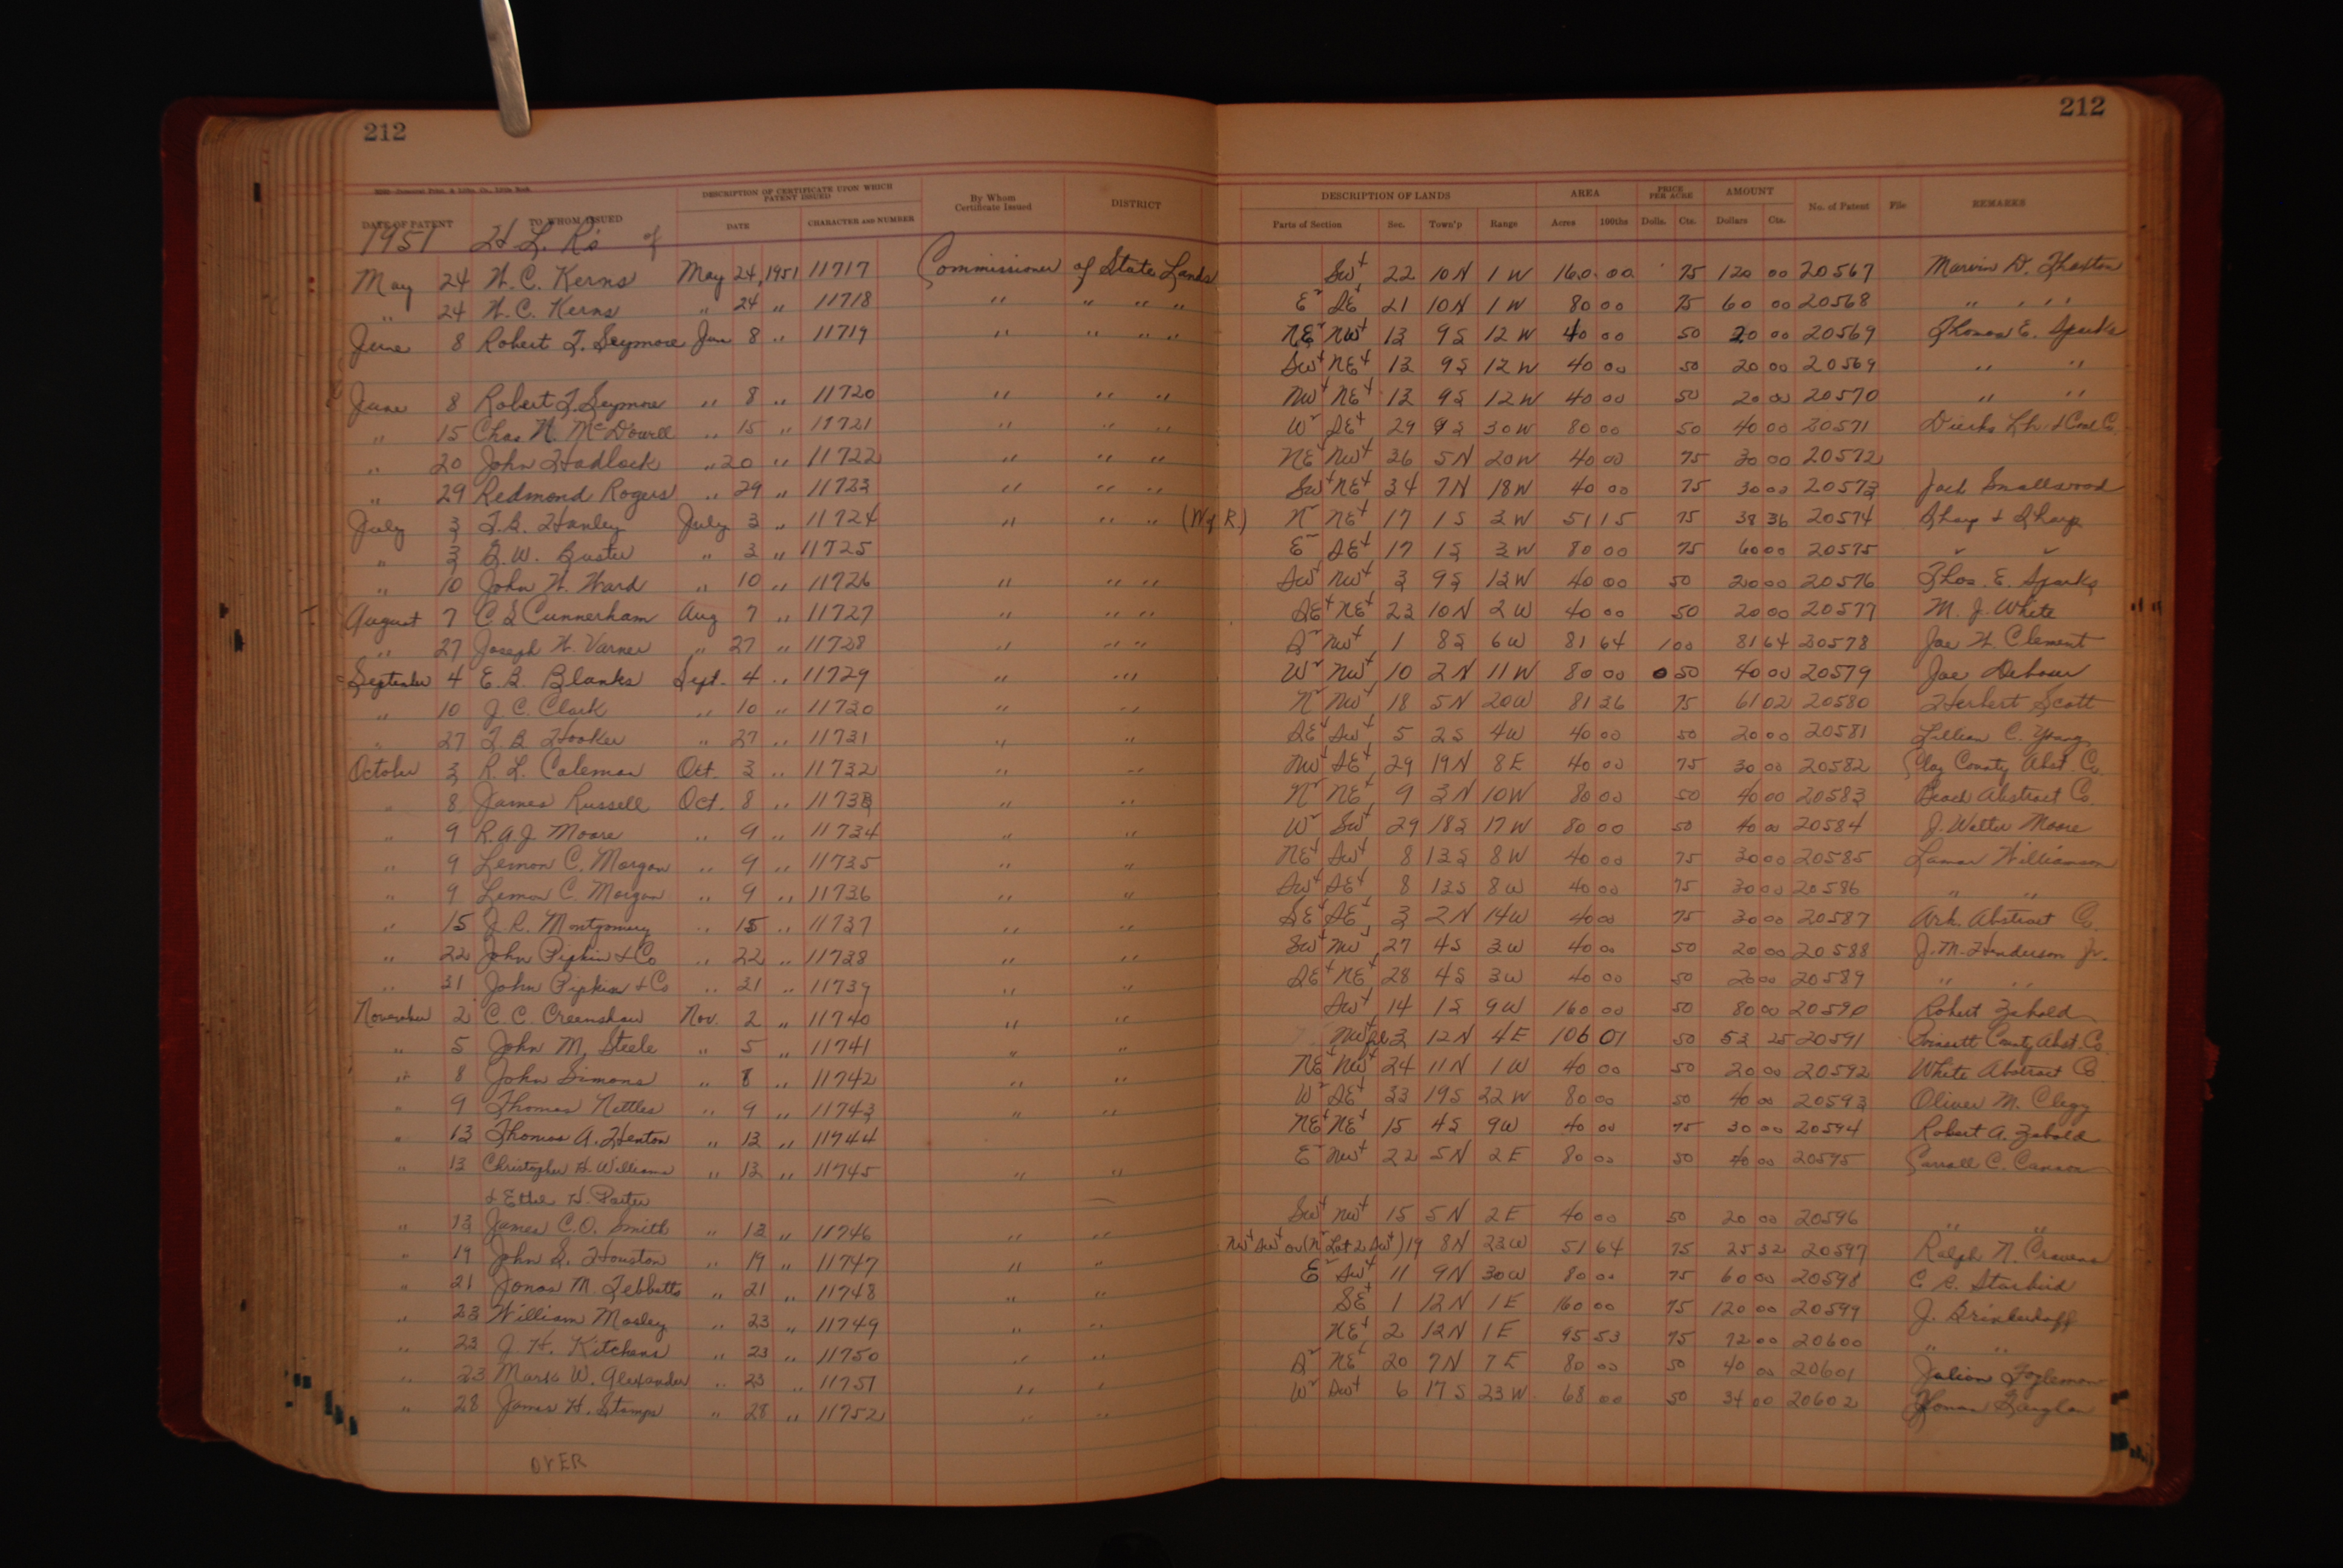 212
212
DESCRIPTION OF CERTIFICATE UPON WHICH PATENT ISSUED
DATE OF PATENT TO WHOM ISSUED DATE CHARACTER AND NUMBER By Whom Certificate Issued DISTRICT
DESCRIPTION OF LANDS AREA PRICE PER ACRE AMOUNT No. of Patent File REMARKS
Parts of Section Sec. Town'p Range Acres 100ths Dolls. Cts. Dollars Cts.
1951 H L. R's of
May 24 H. C. Kerns May 24, 1951 11717 Commissioner of State Lands SW¼ 22 10N 1W 160 00 75 120 00 20567 Marvin D. Thaxton
" 24 H. C. Kerns " 24 " 11718 " " " " E² SE¼ 21 10N 1W 80 00 75 60 00 20568 " " " "
June 8 Robert T. Seymore Jun 8 " 11719 " " " " NE¼ NW¼ 13 9S 12W 40 00 50 20 00 20569 Thomas E. Sparks
SW¼ NE¼ 13 9S 12W 40 00 50 20 00 20569 " "
June 8 Robert T. Seymore " 8 " 11720 " " " NW¼ NE¼ 13 9S 12W 40 00 50 20 00 20570 " "
" 15 Chas N. McDowell " 15 " 11721 " " " W² SE¼ 29 9S 30W 80 00 50 40 00 20571 Dierks Lbr. & Coal Co.
" 20 John Hadlock " 20 " 11722 " " " NE¼ NW¼ 36 5N 20W 40 00 75 30 00 20572
" 29 Redmond Rogers " 29 " 11723 " " " SW¼ NE¼ 34 7N 18W 40 00 75 30 00 20573 Jack Smallwood
July 3 T. B. Hanley July 3 " 11724 " " " (W of R.) N² NE¼ 17 1S 3W 51 15 75 38 36 20574 Sharp & Sharp
" 3 B. W. Buster " 3 " 11725 E² SE¼ 17 1S 3W 80 00 75 60 00 20575 " "
" 10 John H. Ward " 10 " 11726 " " " SW¼ NW¼ 3 9S 13W 40 00 50 20 00 20576 Thos. E. Sparks
August 7 C S Cunnerham Aug 7 " 11727 " " " SE¼ NE¼ 23 10N 2W 40 00 50 20 00 20577 M. J. White
" 27 Joseph H. Varner " 27 " 11728 " " " S² NW¼ 1 8S 6W 81 64 1 00 81 64 20578 Joe H. Clement
September 4 E. B. Blanks Sept. 4 " 11729 " " W² NW¼ 10 2N 11W 80 00 0 50 40 00 20579 Joe
" 10 J. C. Clark " 10 " 11730 " " N² NW¼ 18 5N 20W 81 36 75 61 02 20580 Herbert Scott
" 27 T. B. Hooker " 27 " 11731 " " SE¼ SW¼ 5 2S 4W 40 00 50 20 00 20581 Lillian C. Young
October 3 R. L. Coleman Oct. 3 " 11732 " " NW¼ SE¼ 29 19N 8E 40 00 75 30 00 20582 Clay County Abst Co.
" 8 James Russell Oct. 8 " 11733 " " N² NE¼ 9 3N 10W 80 00 50 40 00 20583 Beach Abstract Co
" 9 R. A. J. Moore " 9 " 11734 " " W² SW¼ 29 18S 17W 80 00 50 40 00 20584 J. Walter Moore
" 9 Lemon C. Morgan " 9 " 11735 " " NE¼ SW¼ 8 13S 8W 40 00 75 30 00 20585 Lamar Williamson
" 9 Lemon C. Morgan " 9 " 11736 " " SW¼ SE¼ 8 13S 8W 40 00 75 30 00 20586 " "
" 15 J. R. Montgomery " 15 " 11737 " " SE¼ SE¼ 3 2N 14W 40 00 75 30 00 20587 Ark. Abstract Co.
" 22 John Pipkin & Co " 22 " 11738 " " SW¼ NW¼ 27 4S 3W 40 00 50 20 00 20588 J. M. Henderson Jr.
" 31 John Pipkin & Co " 31 " 11739 " " SE¼ NE¼ 28 4S 3W 40 00 50 20 00 20589 " "
November 2 C. C. Creenshaw Nov. 2 " 11740 " " SW¼ 14 1S 9W 160 00 50 80 00 20590 Robert Zebold
" 5 John M. Steele " 5 " 11741 " " NW¼ 3 12N 4E 106 01 50 53 25 20591 Poinsett County Abst. Co
" 8 John Simons " 8 " 11742 " " NE¼ NW¼ 24 11N 1W 40 00 50 20 00 20592 White Abstract Co
" 9 Thomas Nettles " 9 " 11743 " " W² SE¼ 33 19S 22W 80 00 50 40 00 20593 Oliver M. Clegg
" 13 Thomas A. Henton " 13 " 11744 NE¼ NE¼ 15 4S 9W 40 00 75 30 00 20594 Robert A. Zebold
" 13 Christopher H. Williams " 13 " 11745 " " E² NW¼ 22 5N 2E 80 00 50 40 00 20595 Carroll C. Cannon
& Ethel H. Porter
" 13 James C. O. Smith " 13 " 11746 " " SW¼ NW¼ 15 5N 2E 40 00 50 20 00 20596 " "
" 19 John S. Houston " 19 " 11747 " " NW¼ SW¼ or (N² Lot 2 SW¼) 19 8N 23W 51 64 75 25 32 20597 Ralph N. Cravens
" 21 Jonas M. Tebbetts " 21 " 11748 " " E² SW¼ 11 9N 30W 80 00 75 60 00 20598 C. R. Starbird
" 23 William Mosley " 23 " 11749 " " SE¼ 1 12N 1E 160 00 75 120 00 20599 J. Brinkerhoff
" 23 J. H. Kitchens " 23 " 11750 " " NE¼ 2 12N 1E 95 53 75 72 00 20600 " "
" 23 Mark W. Alexander " 23 " 11751 " " S² NE¼ 20 7N 7E 80 00 50 40 00 20601 Julian Fogleman
" 28 James H. Stamps " 28 " 11752 " " W² SW¼ 6 17S 23W 68 00 50 34 00 20602
OVER